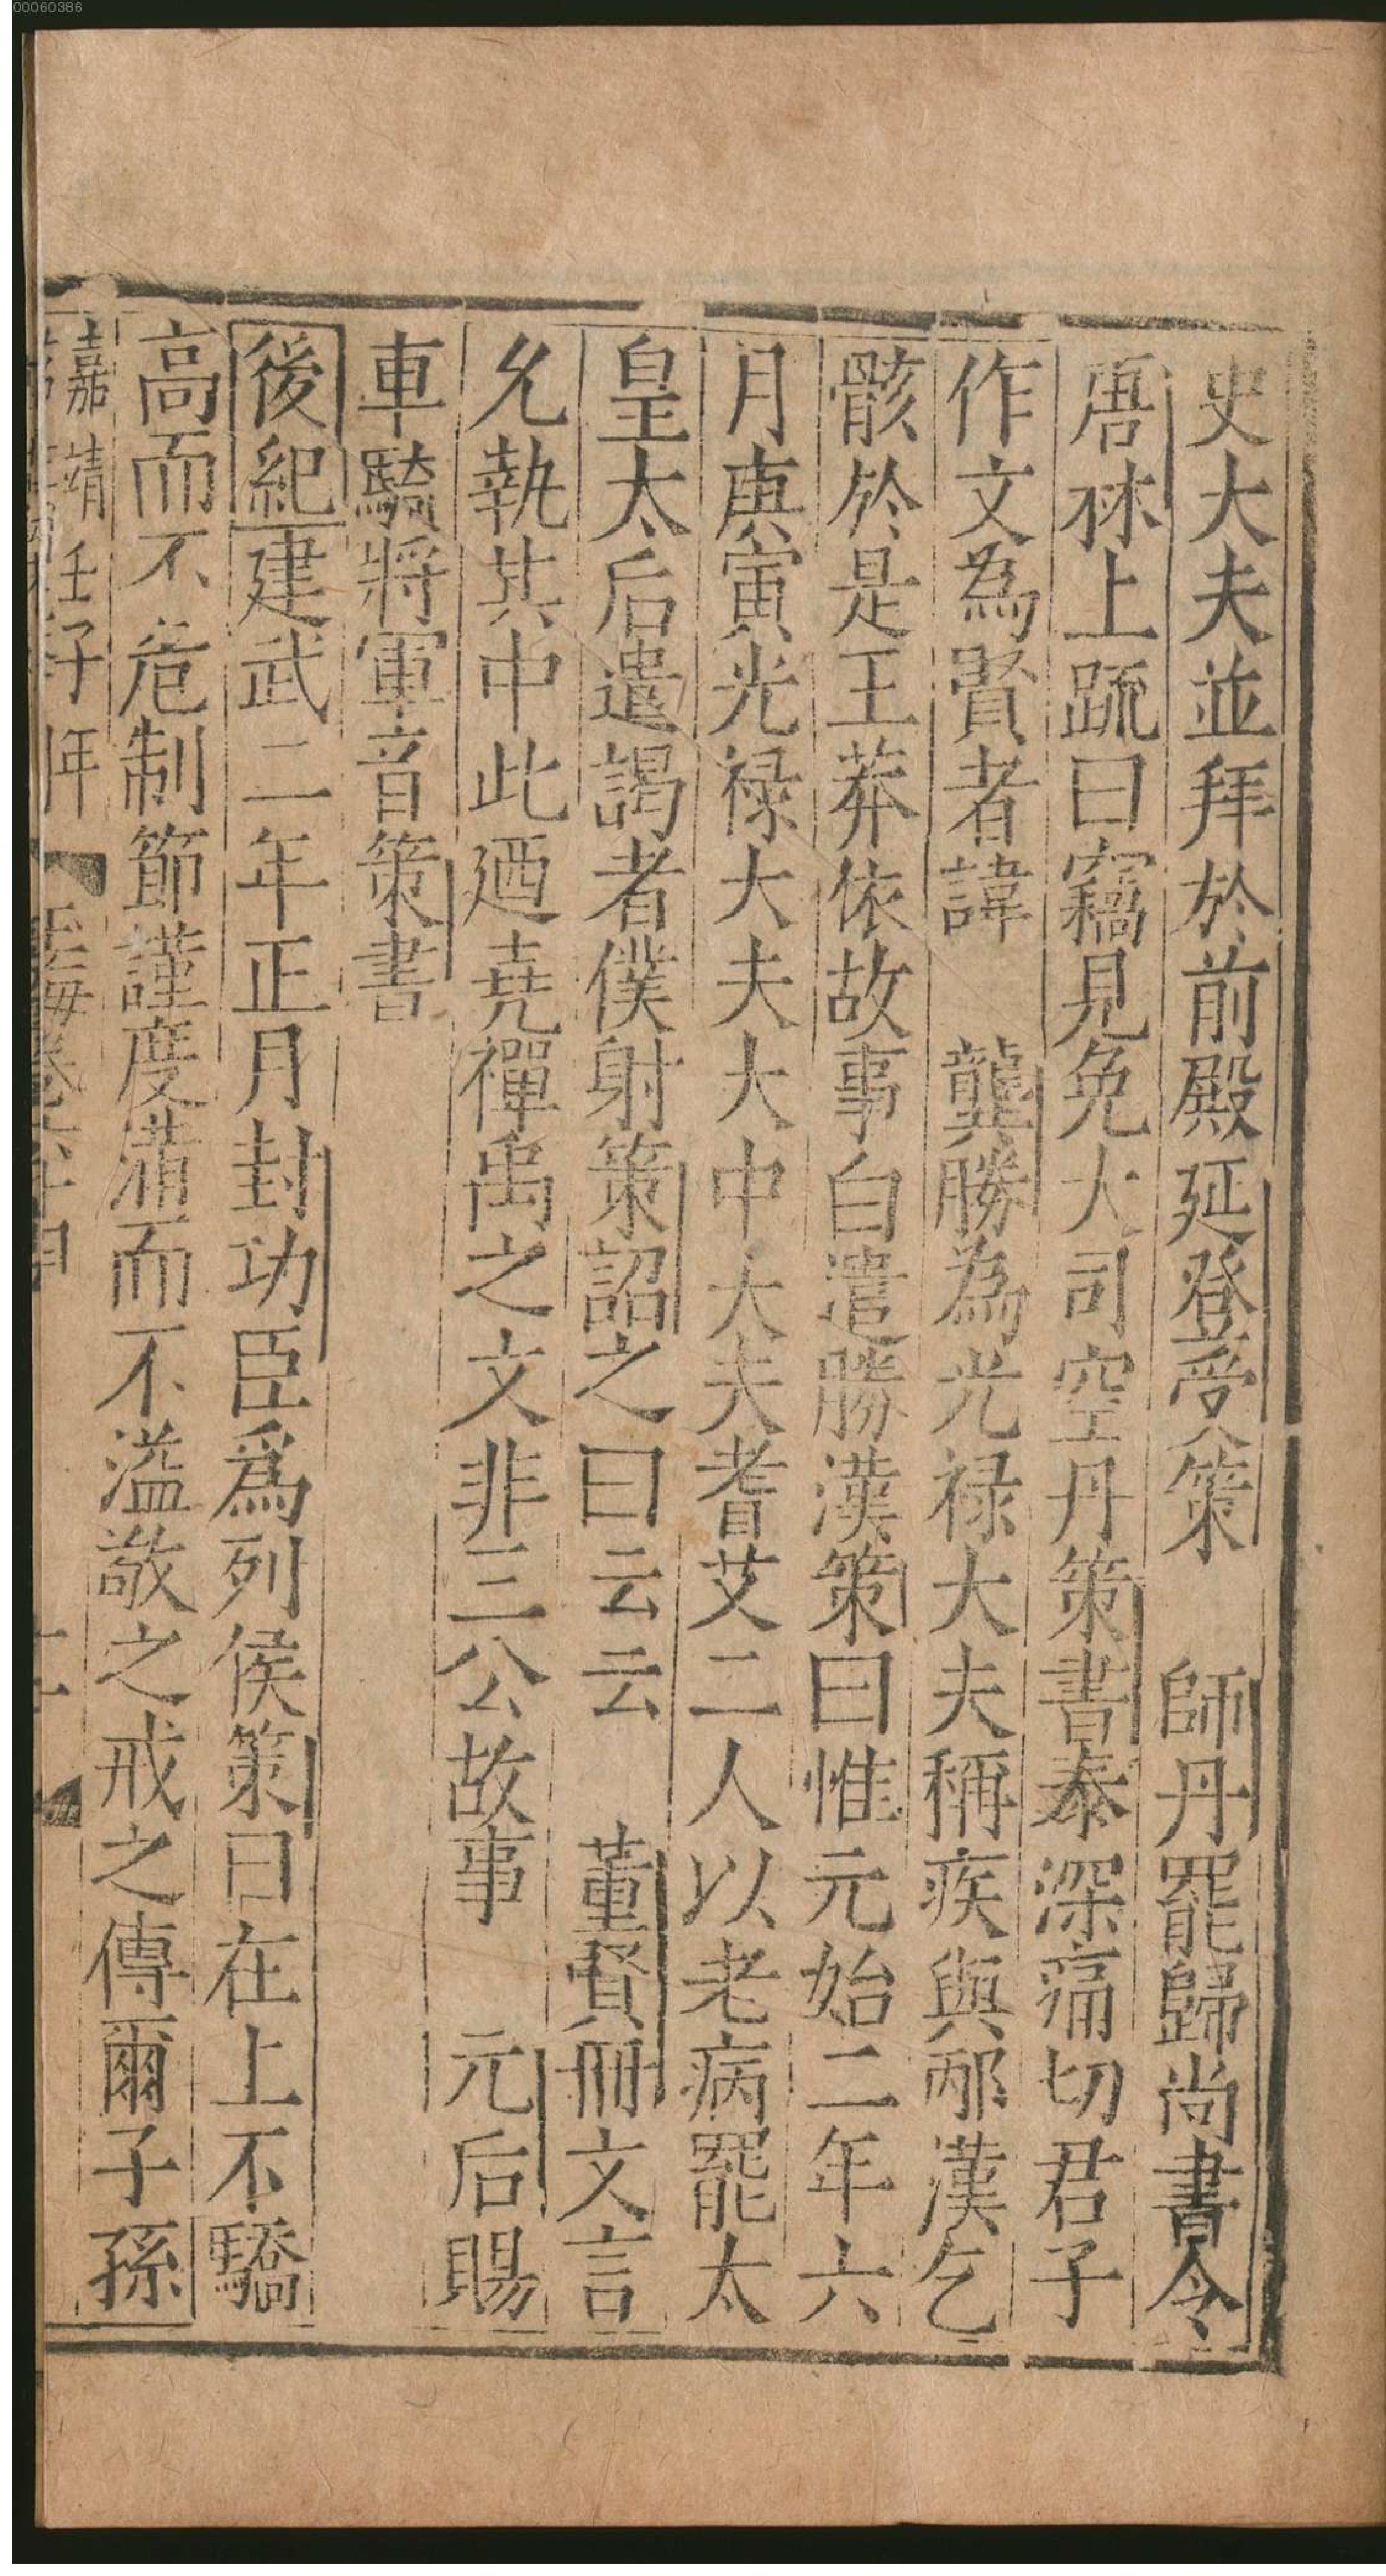 00060386
史大夫並拜於前殿延登受策　師丹罷歸尚書令
唐林上疏曰竊見免大司空丹策書泰深痛切君子
作文為賢者諱　龔勝為光禄大夫稱疾與邴漢乞
骸於是王莽依故事白遣勝漢策曰惟元始二年六
月庚寅光禄大夫大中大夫耆艾二人以老病罷太
皇太后遣謁者僕射策詔之曰云云　董賢冊文言
允執其中此廼堯禪禹之文非三公故事　元后賜
車騎將軍音策書
後紀建武二年正月封功臣爲列侯策曰在上不驕
高而不危制節謹度滿而不溢敬之戒之傳爾子孫
嘉靖壬子年　玉海卷六十四